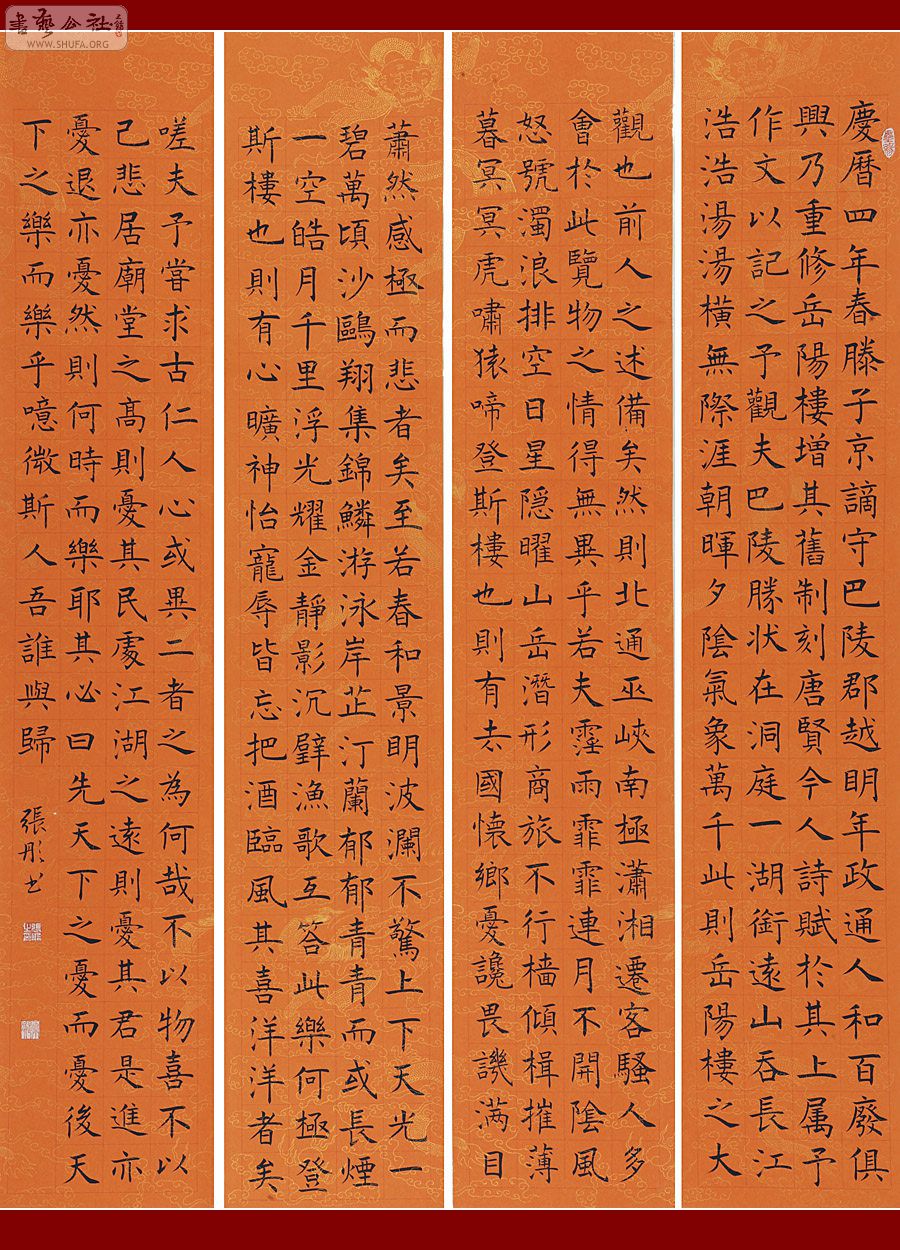 書藝公社
WWW.SHUFA.ORG
慶暦四年春滕子京謫守巴陵郡越明年政通人和百廢俱
興乃重修岳陽樓增其舊制刻唐賢今人詩賦於其上属予
作文以記之予觀夫巴陵勝状在洞庭一湖銜遠山吞長江
浩浩湯湯橫無際涯朝暉夕陰氣象萬千此則岳陽樓之大
觀也前人之述備矣然則北通巫峽南極瀟湘遷客騷人多
會於此覽物之情得無異乎若夫霪雨霏霏連月不開陰風
怒號濁浪排空日星隠曜山岳潛形商旅不行檣傾楫摧薄
暮冥冥虎嘯猿啼登斯樓也則有去國懷鄉憂讒畏譏滿目
蕭然感極而悲者矣至若春和景明波瀾不驚上下天光一
碧萬頃沙鷗翔集錦鱗游泳岸芷汀蘭郁郁青青而或長煙
一空皓月千里浮光耀金靜影沉璧漁歌互答此樂何極登
斯樓也則有心曠神怡寵辱皆忘把酒臨風其喜洋洋者矣
嗟夫予嘗求古仁人心或異二者之為何哉不以物喜不以
己悲居廟堂之高則憂其民處江湖之遠則憂其君是進亦
憂退亦憂然則何時而樂耶其必曰先天下之憂而憂後天
下之樂而樂乎噫微斯人吾誰與歸
張彤书